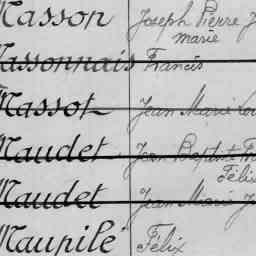 Masson Joseph Pierre
Marie
Massonnais Francis
Massot Jean Marie
Maudet Jean Baptiste
Félix
Maudet Jean Marie
Maupilé Félix